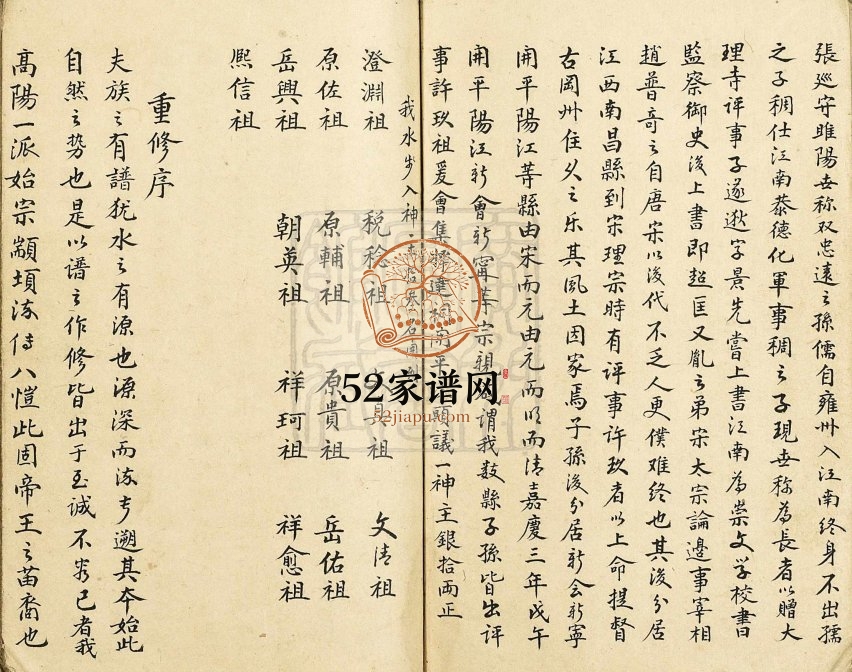 張巡守睢陽世称双忠遠之孫儒自雍州入江南終身不出孺
之子稠仕江南恭德化軍事稠之子現世称為長者以贈大
理寺评事子遂逖字景先嘗上書江南為崇文学校書曰
監察御史後上書即超匡又胤之弟宋太宗論邊事宰相
趙普奇之自唐宋以後代不乏人更僕难终也其後分居
江西南昌縣到宋理宗時有评事許玖者以上命提督
古岡州住久之乐其風土因家焉子孫後分居新会新寧
開平陽江等縣由宋而元由元而明而清嘉慶三年戊午
開平陽江新會新寧等宗親 謂我数縣子孫皆出评
事許玖祖爰會集 建 開平 頭議一神主銀拾両正
我水步入神
澄淵祖 税稔祖 具祖 文清祖
原佐祖 原輔祖 原貴祖 岳佑祖
岳興祖 朝英祖 祥珂祖 祥愈祖
熙信祖
重修序
夫族之有譜犹水之有源也源深而流长遡其本始此
自然之势也是以谱之作修皆出于至诚不容已者我
高陽一派始宗顓頊流侍八愷此固帝王之苗裔也
52家谱网
52jiapu.com